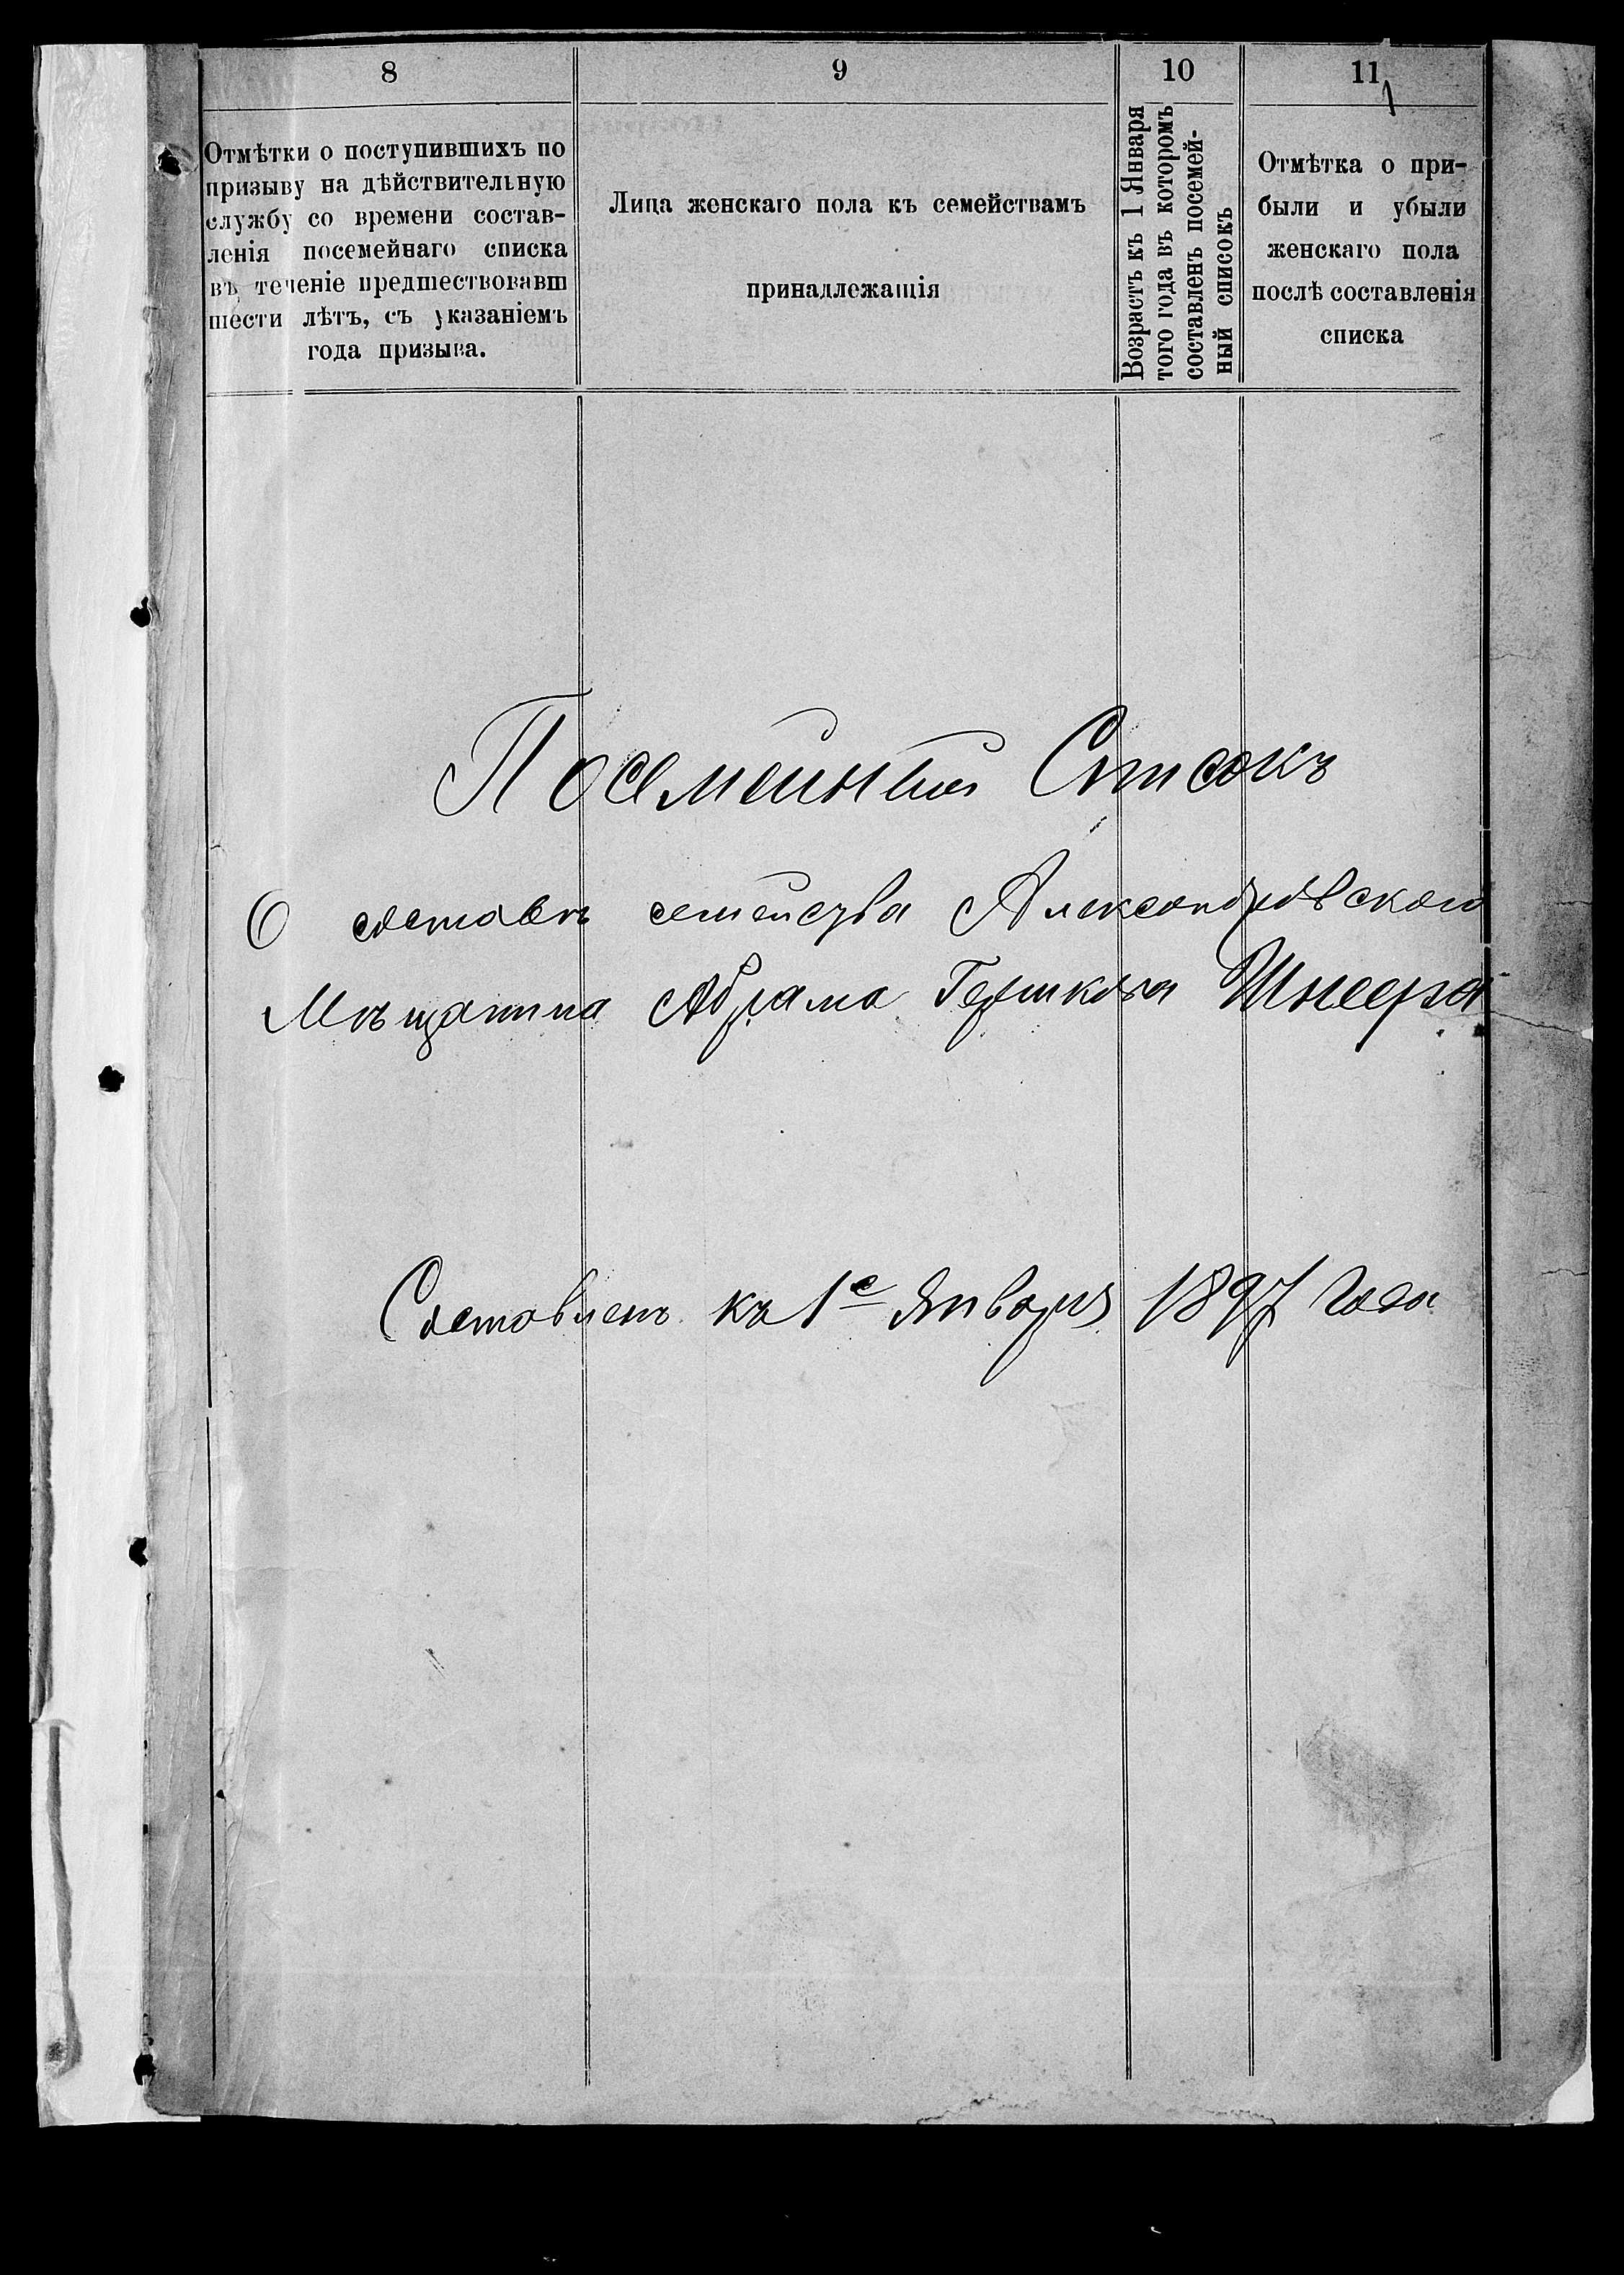 8
Отмѣтки о поступившихъ по
призыву на дѣйствительную
службу со времени состав-
ленія посемейнаго списка
въ теченіе предшествовавш
шести лѣтъ, съ указаніемъ
года призыва.
9
Лица женскаго пола къ семействамъ
принадлежащія
10
Возрастъ къ 1 Января
того года въ которомъ
составленъ посемей-
ный списокъ
11
Отмѣтка о при-
были и убыли
женскаго пола
послѣ составленія
списка
Посемейный Списокъ
О составѣ семейства Александровскаго
Мѣщанина Абрама Гершкова Шнеера
Составленъ къ 1е Января 1897 года